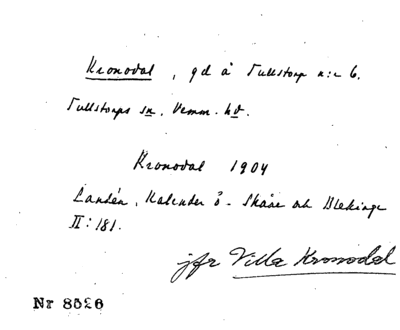 Kronodal, gd å Tullstorp n:r 6.
Tullstorps sn. Vemm. hd.
Kronodal 1904
Landén, Kalender ö. Skåne och Blekinge
II:181.
jfr Villa Kronodal
Nr 8526